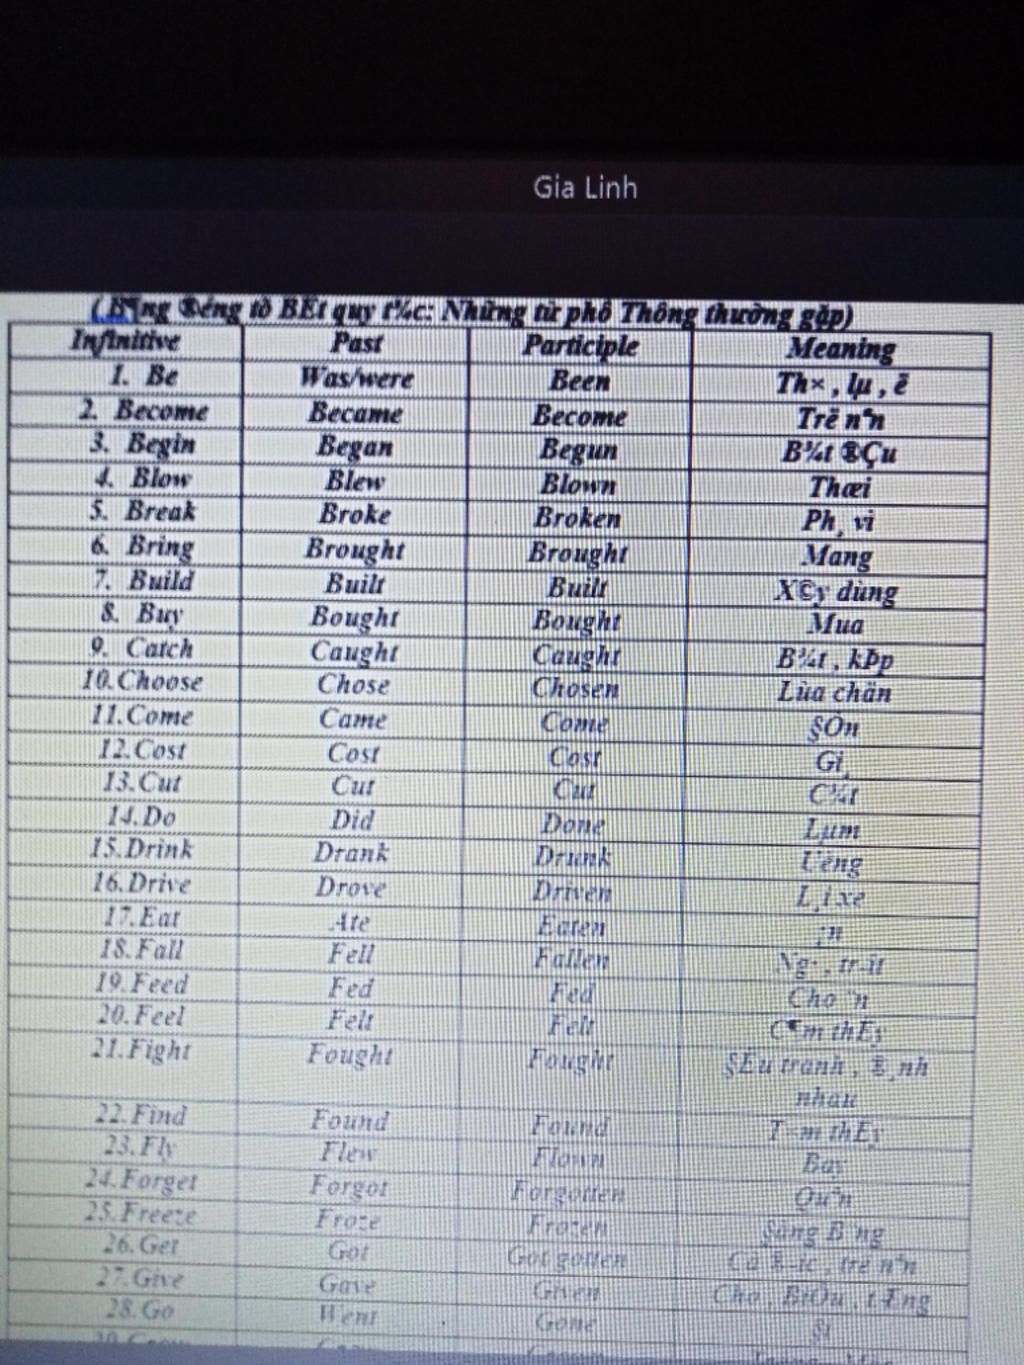 Gia Linh
( B¶ng ®éng tõ BÊt quy t¾c: Những từ phổ Thông thường gặp)
Infinitive Past Participle Meaning
1. Be Was/were Been Th× , lµ , ë
2. Become Became Become Trë nªn
3. Begin Began Begun B¾t ®Çu
4. Blow Blew Blown Thæi
5. Break Broke Broken Ph¸ vì
6. Bring Brought Brought Mang
7. Build Built Built X©y dùng
8. Buy Bought Bought Mua
9. Catch Caught Caught B¾t , kÞp
10. Choose Chose Chosen Lùa chän
11. Come Came Come §Õn
12. Cost Cost Cost Gi¸
13. Cut Cut Cut C¾t
14. Do Did Done Lµm
15. Drink Drank Drunk Uèng
16. Drive Drove Driven L¸i xe
17. Eat Ate Eaten ¡n
18. Fall Fell Fallen Ng· , tr-ît
19. Feed Fed Fed Cho ¨n
20. Feel Felt Felt C¶m thÊy
21. Fight Fought Fought §Êu tranh , ®¸nh
nhau
22. Find Found Found T×m thÊy
23. Fly Flew Flown Bay
24. Forget Forgot Forgotten Quªn
25. Freeze Froze Frozen §ãng B¨ng
26. Get Got Got gotten Cã ®-îc , trë nªn
27. Give Gave Given Cho , BiÕu , tÆng
28. Go Went Gone §i